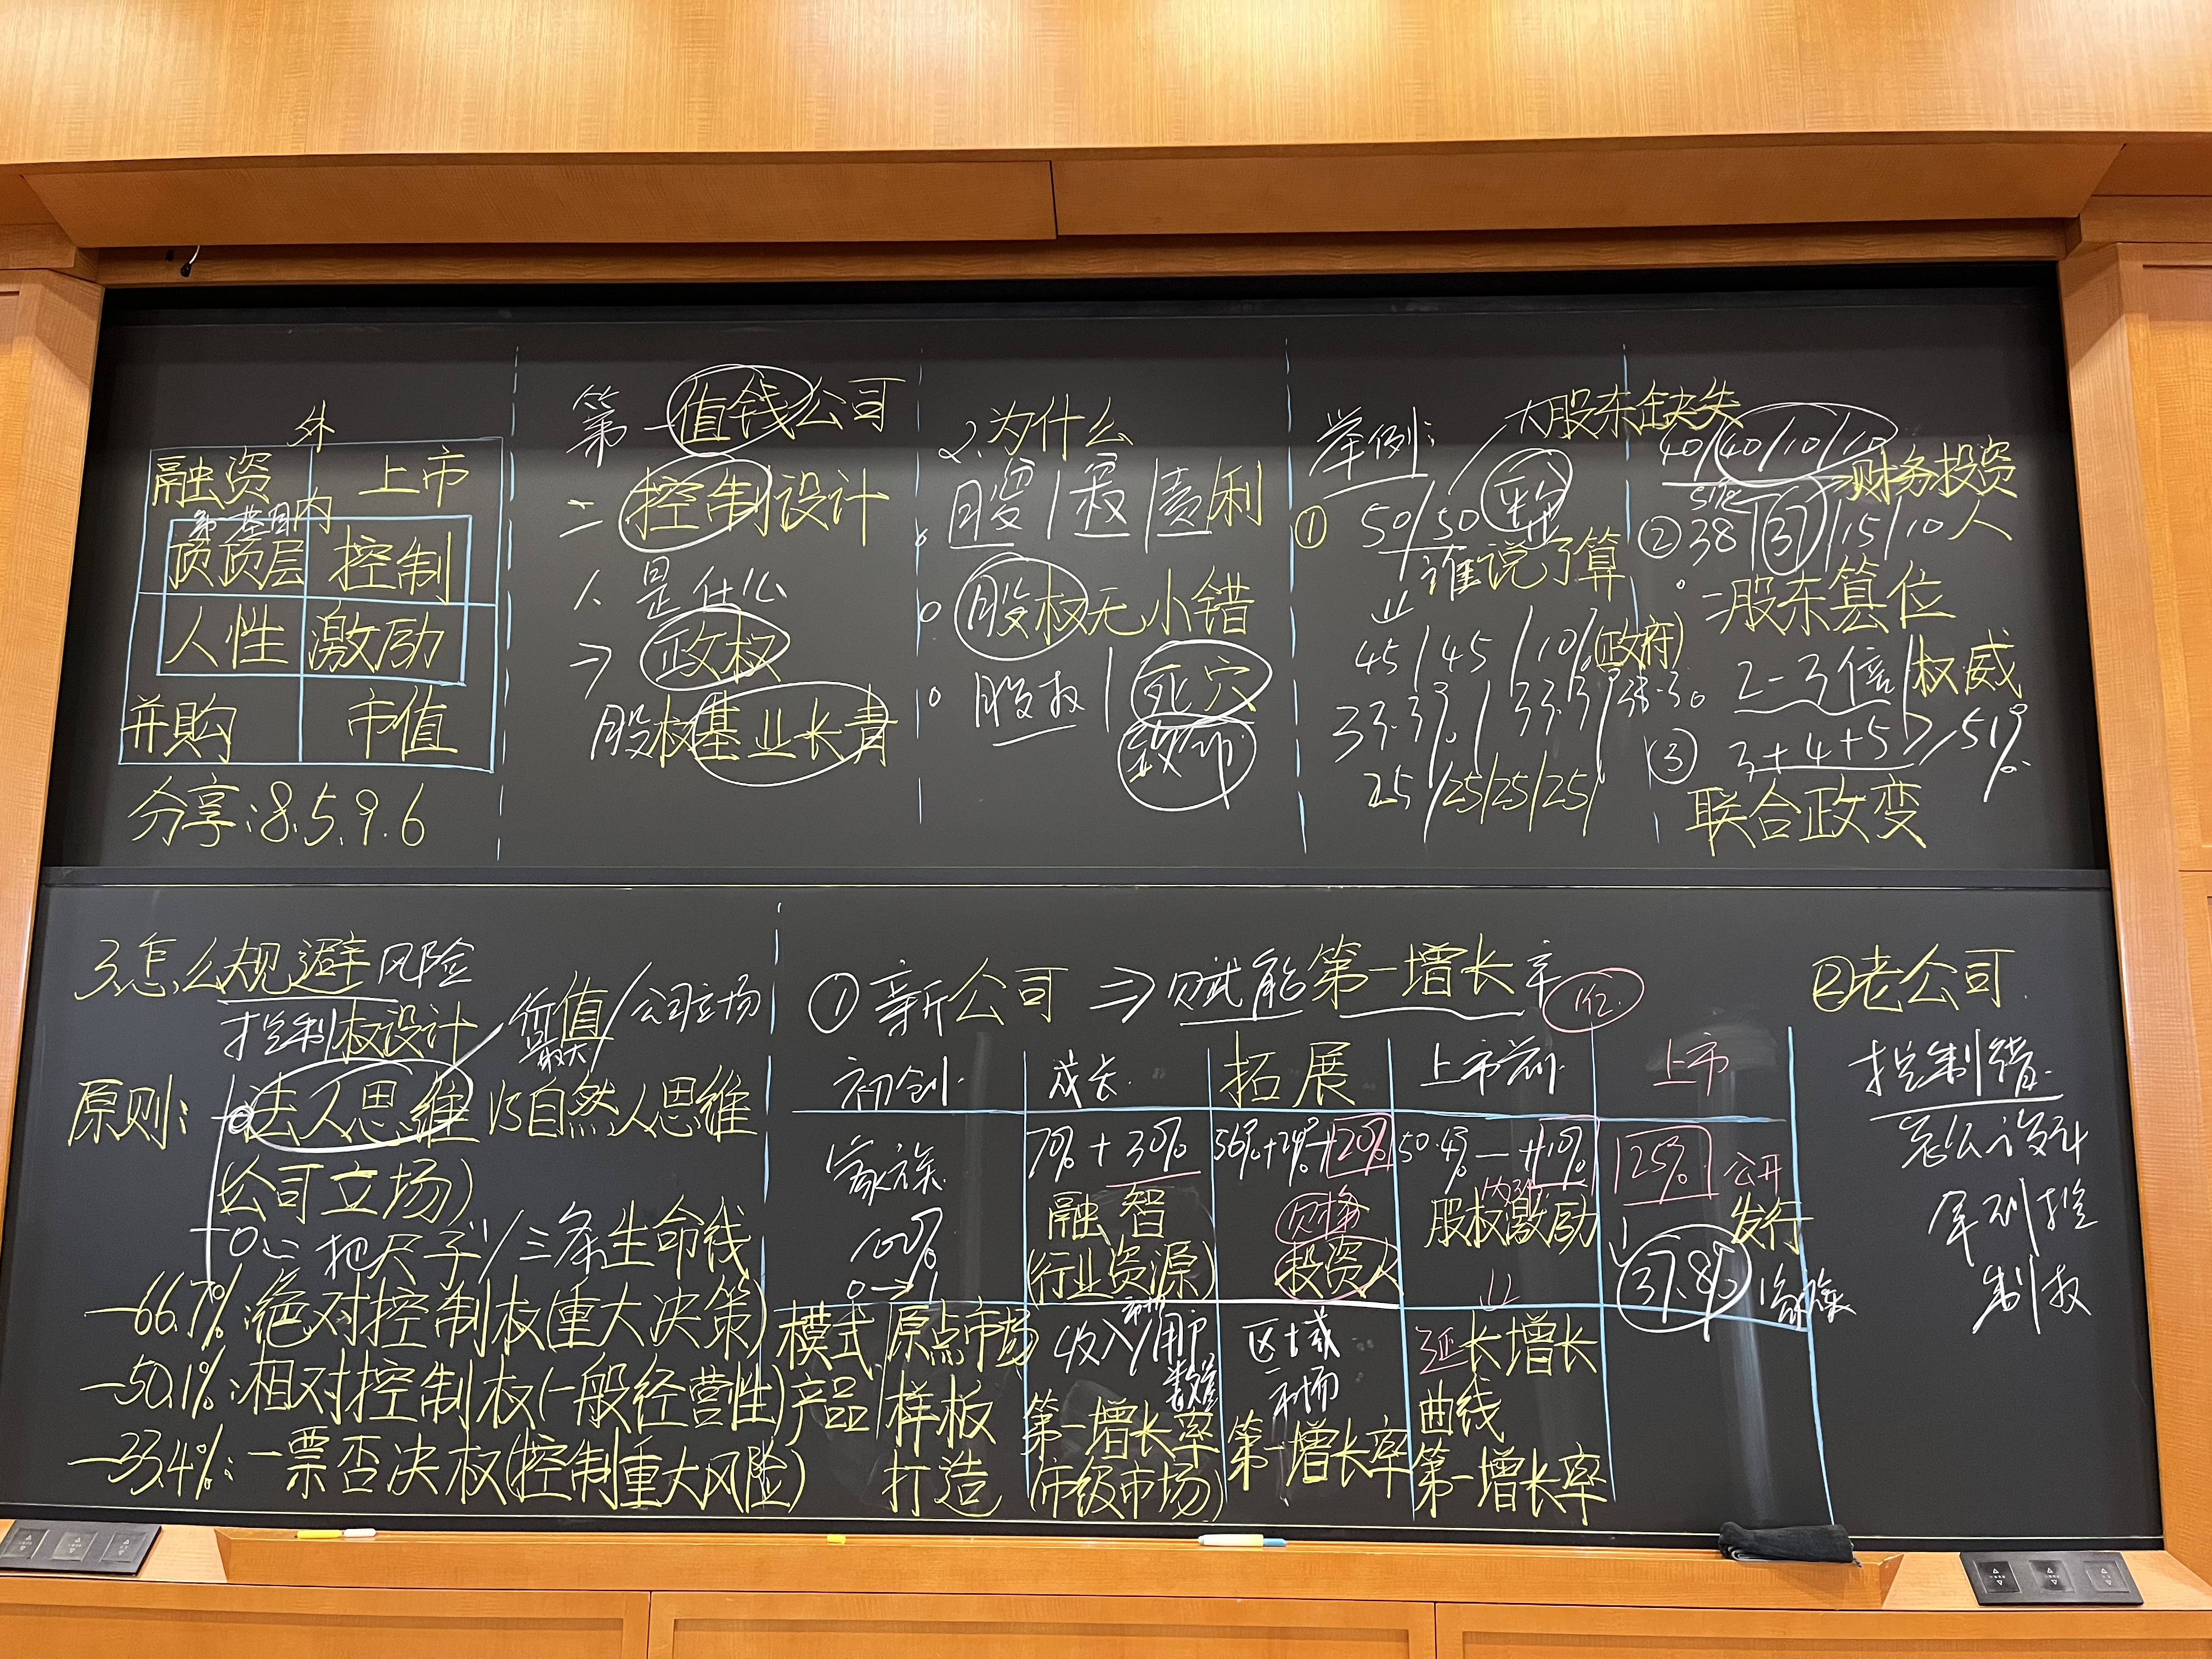 外
融资 上市
内
顶顶层 控制
人性 激励
并购 市值
分享:8.5.9.6
第一值钱公司
二控制设计
人是什么
→ 政权
股权基业长青
2.为什么
股|权|责|利
股权无小错
股权|死穴
举例:
大股东缺失
① 50/50
谁说了算
45/45/10%(政府)
33.3%/33.3%/33.3%
25/25/25/25/
40/40/10/10
财务投资人
51%
② 38/37/15/10
二股东篡位
2-3倍|权威
③ 3+4+5>51%
联合政变
3.怎么规避风险
控制权设计
价值最大/公司立场
原则: 法人思维 VS 自然人思维
(公司立场)
一把尺子/三条生命线
—66.7%:绝对控制权(重大决策)
—50.1%:相对控制权(一般经营性)
—33.4%:一票否决权(控制重大风险)
① 新公司 ⇒ 赋能第一增长率
初创 成长 拓展 上市前 上市
家族 100% 0→1
70%+30%
融智
(行业资源)
56%+24%+20%
投资人
50.4%—+10%
股权激励
25% 公开发行
37.8% 家族
模式 原点市场
产品 样板打造
收入/用户数
第一增长率
(市级市场)
区域市场
第一增长率
延长增长
曲线
第一增长率
②老公司
控制错
怎么设计
拿到控
制权